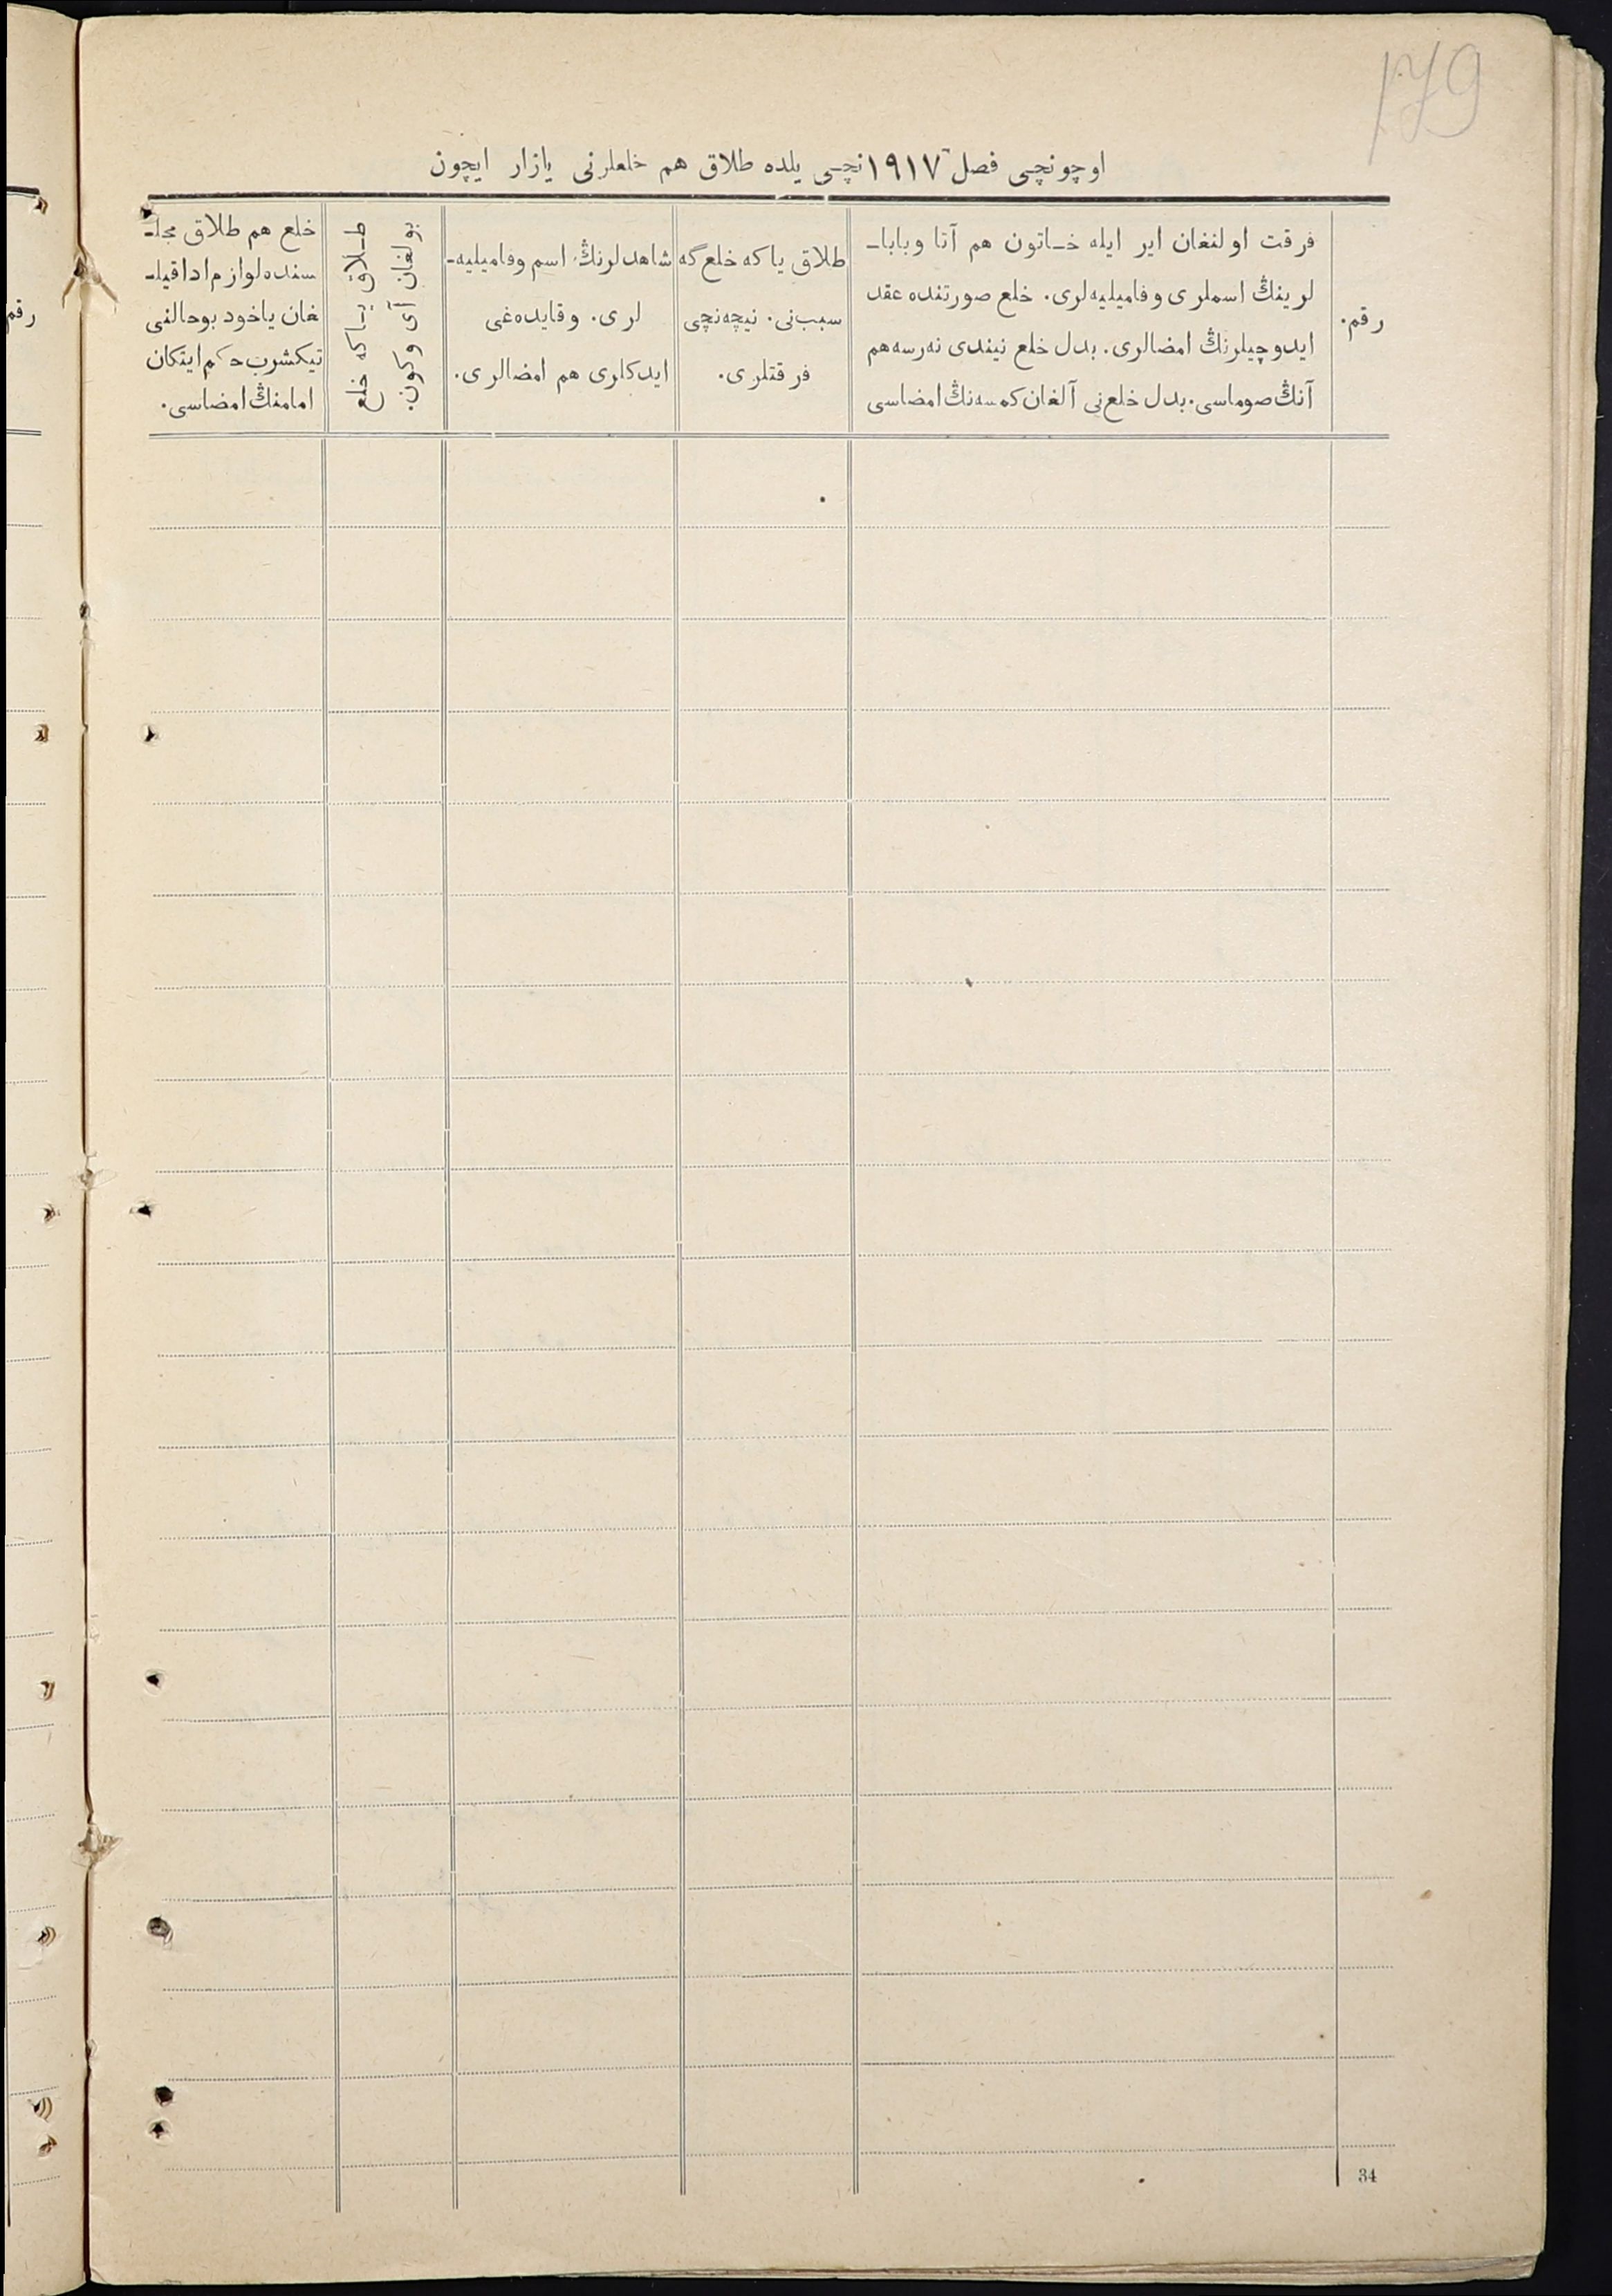 179
اوچونچی فصل ١٩١٧ نچی یلده طلاق هم خلعلرنی یازار ایچون
رقم.
فرقت اولنغان ایر ایله خاتون هم آتا و بابا-
لرینڭ اسملری و فامیلیه‌لری. خلع صورتنده عقد
ایدوچیلرنڭ امضالری. بدل خلع نیندی نەرسه هم
آنڭ صوماسی. بدل خلع‌نی آلغان کمسه‌نڭ امضاسی
طلاق یاکه خلع گه
سبب‌نی. نیچه‌نچی
فرقتلری.
شاهدلرنڭ اسم و فامیلیه-
لری. و قایده‌غی
ایدکلری هم امضالری.
طلاق یاکه خلع
بولغان آی و کون.
خلع هم طلاق مجل-
سنده لوازم ادا قیل-
غان یاخود بو حالنی
تیکشرب حکم ایتکان
امامنڭ امضاسی.
رقم
34